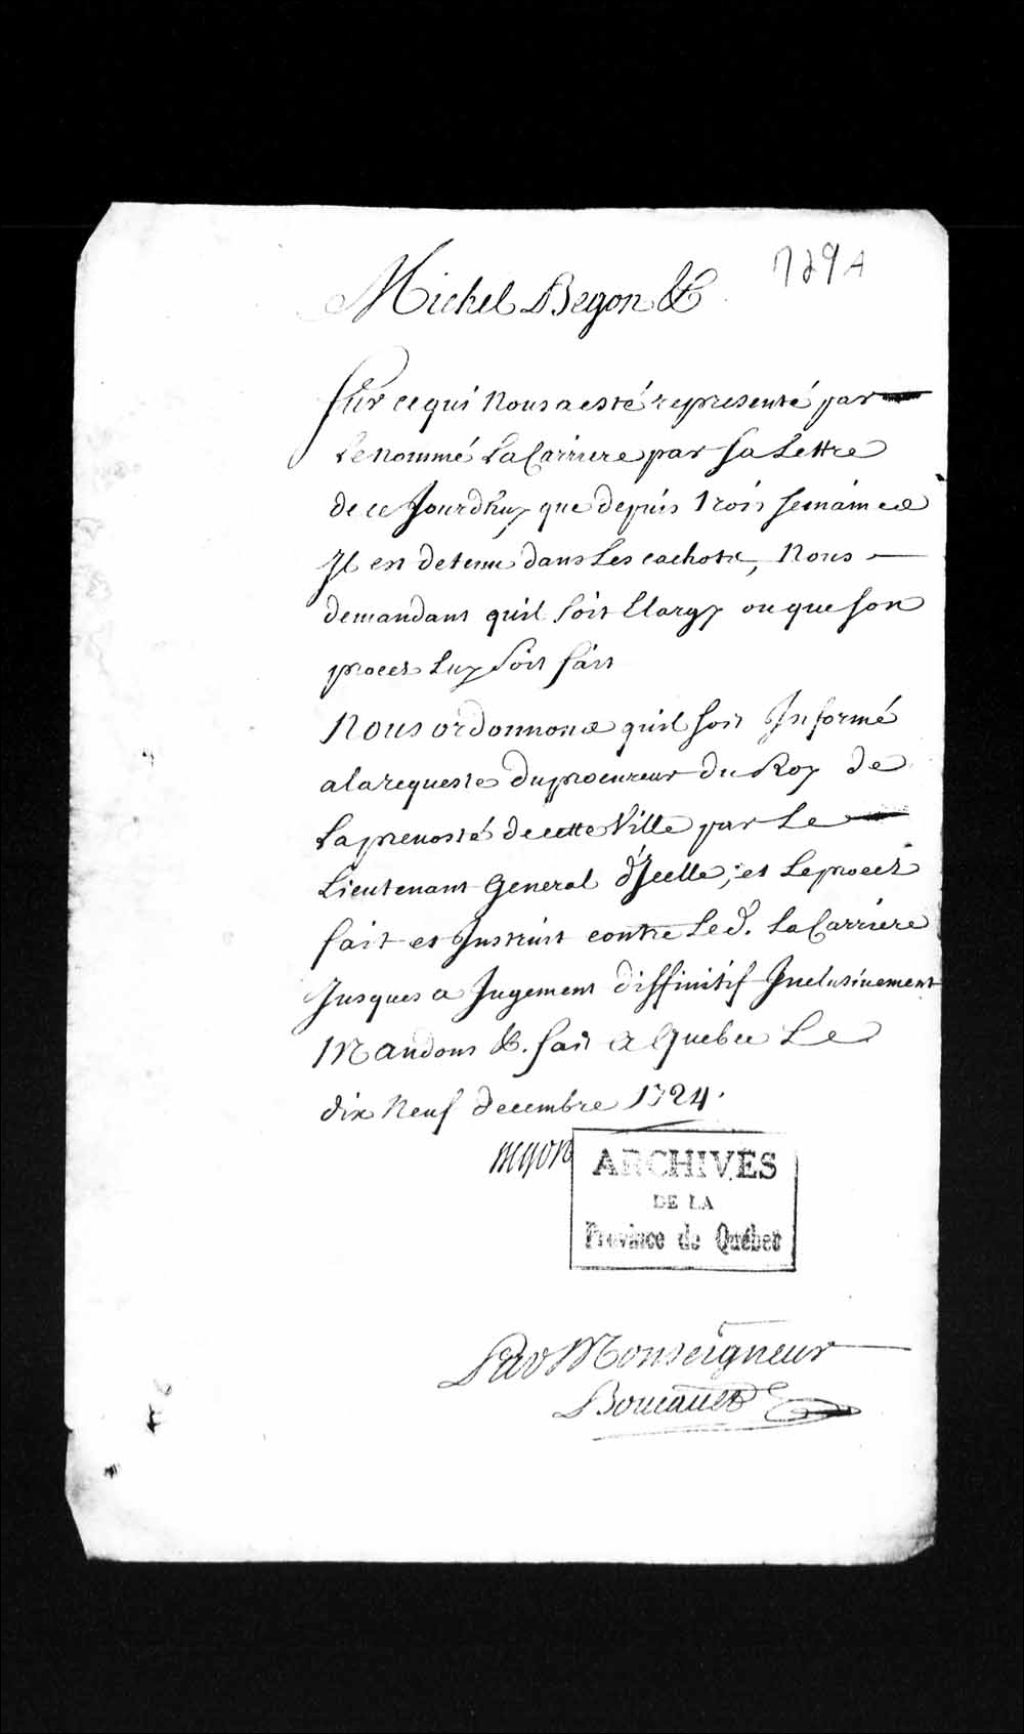 729A
Michel Begon &c
Sur ce qui Nous a esté representé par
Le nommé La Carriere par Sa Lettre
de ce Jourdhuy que depuis trois semaines
Il est detenu dans Les cachots, Nous
demandant quil soit Elargy ou que son
procez Luy soit fait
Nous ordonnons quil soit Informé
a la requeste du procureur du Roy de
La prevosté de cette Ville par Le
Lieutenant General d'Icelle, et Le procez
fait et Instruit contre Led. La Carriere
Jusques a Jugement diffinitif Inclusivement
Mandons &c. fait a Quebec Le
dix Neuf decembre 1724.
Begon
ARCHIVES
DE LA
Province de Québec
Par Monseigneur
Boucault